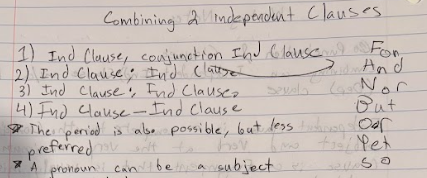 Combining 2 independent Clauses
1) Ind Clause, conjunction Ind Clause
2) Ind Clause; Ind Clause
3) Ind Clause: Ind Clause
4) Ind Clause — Ind Clause
* The period is also possible, but less
preferred
* A pronoun can be a subject
For
And
Nor
But
Oor
Yet
So